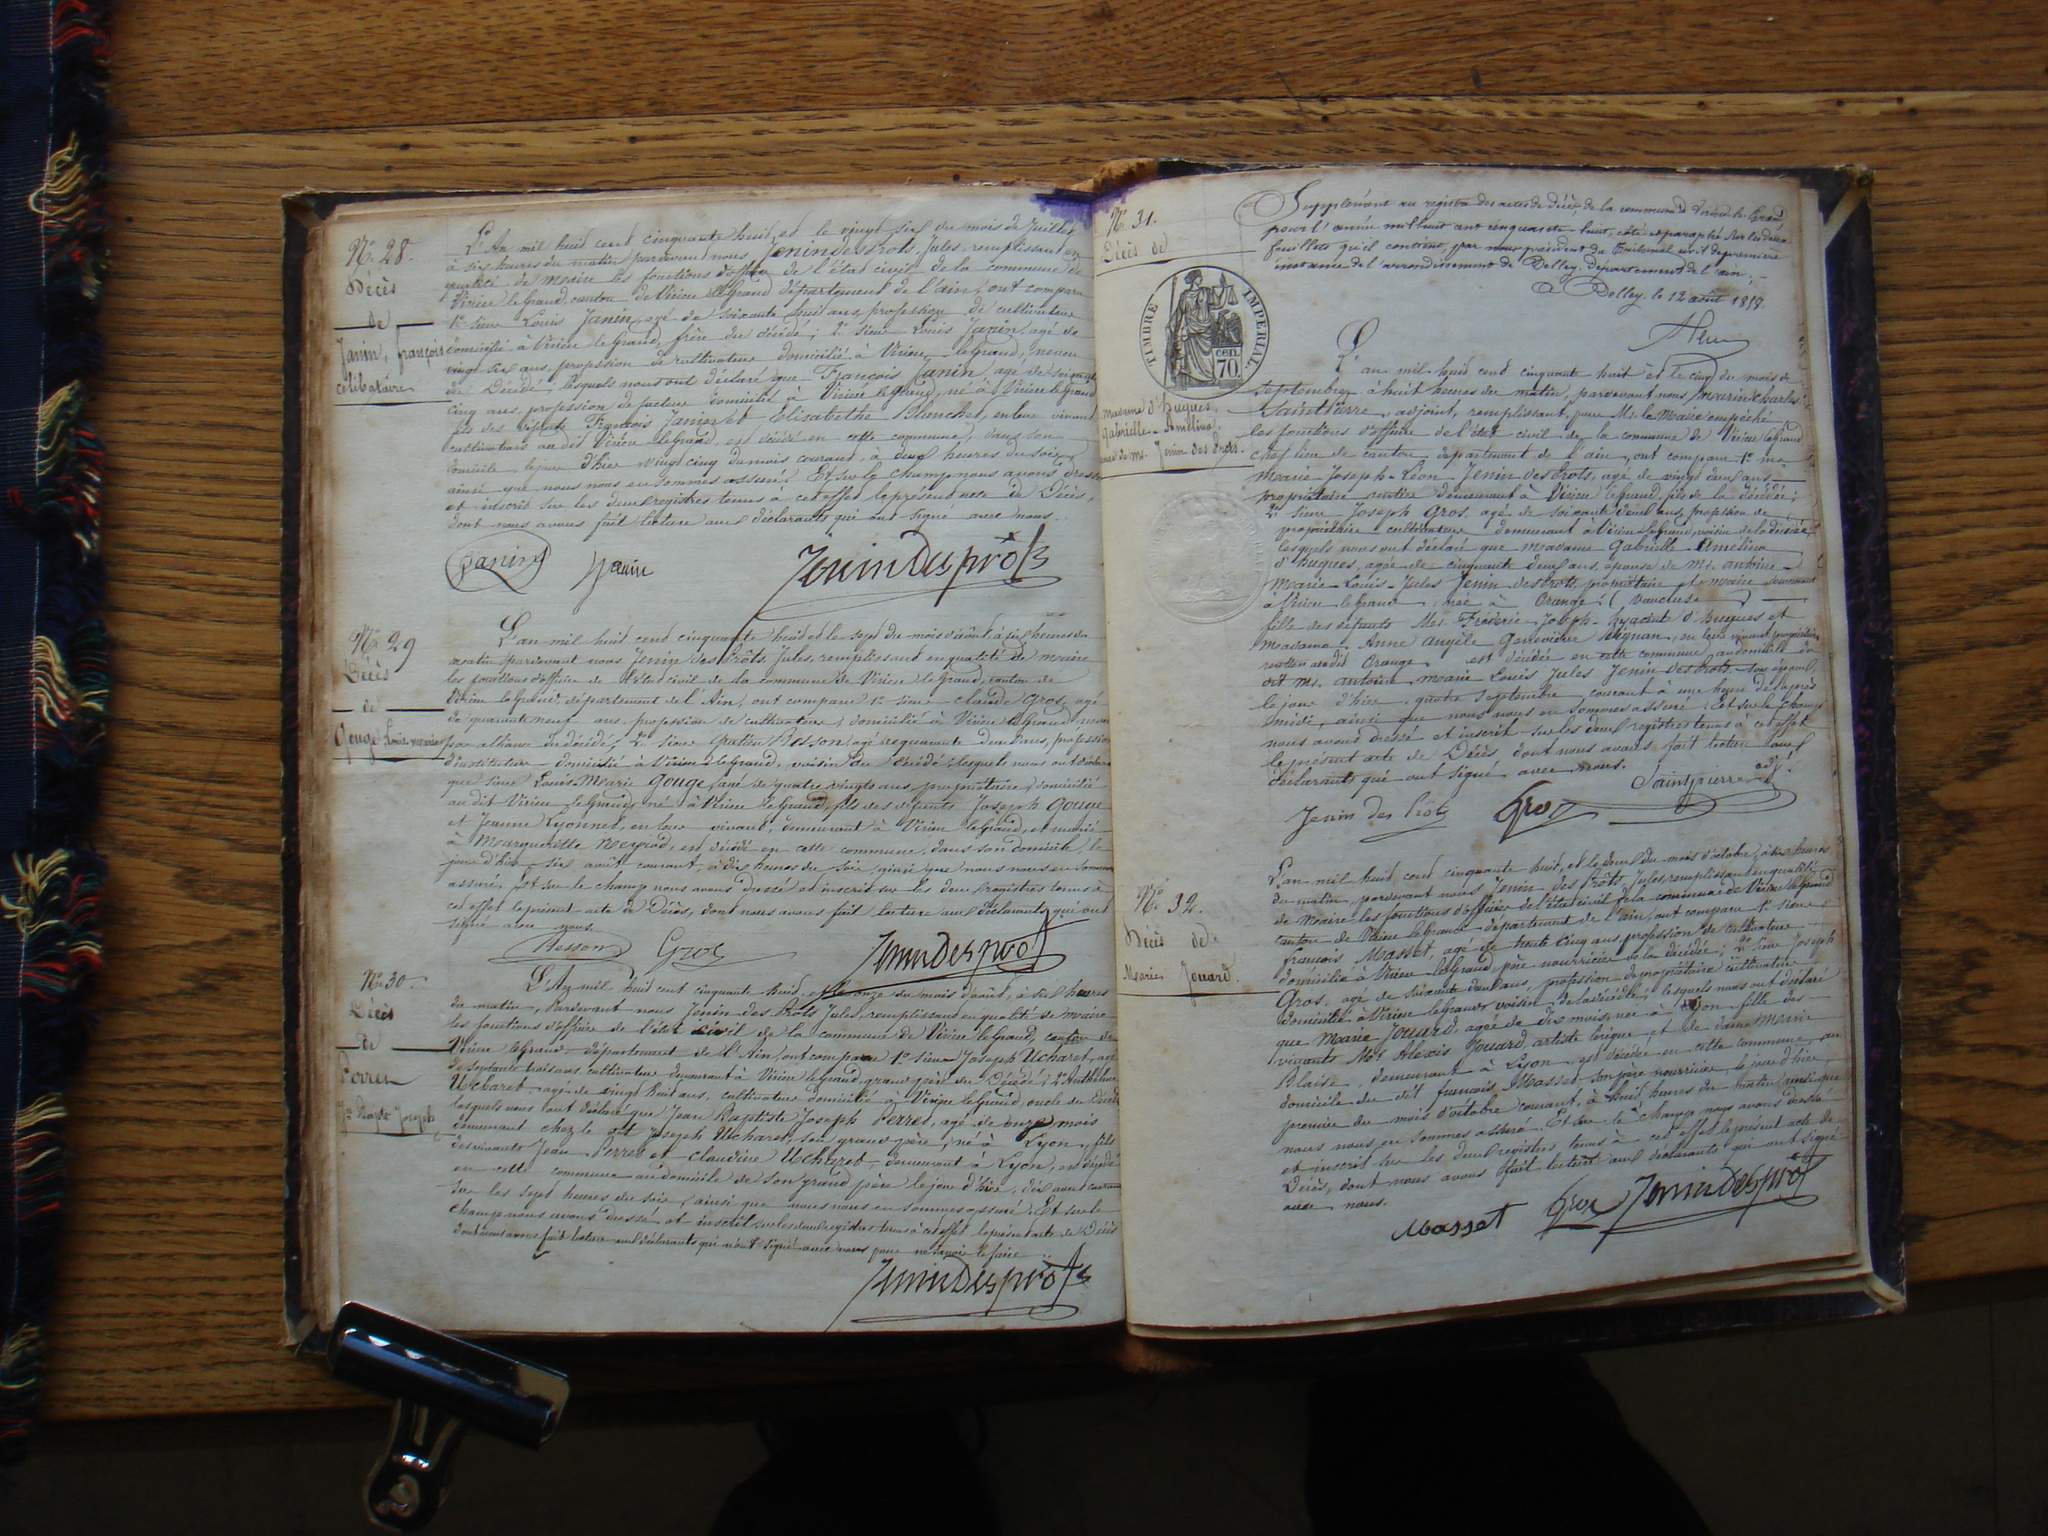 N° 28.
Décès
de
Janin, françois
célibataire
L'An mil huit cent cinquante huit, et le vingt six du mois de Juillet
à six heures du matin pardevant nous Jenin des Prots, Jules, remplissant en
qualité de Maire les fonctions d'officier de l'état civil de la commune de
Virieu le Grand, canton de Virieu le Grand département de l'ain, ont comparu
1° sieur Louis Janin, agé de soixante huit ans, profession de cultivateur
domicilié à Virieu le Grand, frère du décédé; 2° sieur Louis Janin, agé de
vingt six ans, profession de cultivateur domicilié à Virieu le Grand, neveu
du Décédé; lesquels nous ont déclaré que François Janin, agé de soixante
cinq ans, profession de facteur domicilié à Virieu le Grand, né à Virieu le Grand
fils des défunts François Janin et Elisabethe Blanchet, en leur vivant
cultivateurs au dit Virieu le Grand, est décédé en cette commune, dans son
domicile le jour d'hier vingt cinq du mois courant, à deux heures du soir,
ainsi que nous nous en sommes assuré. Et sur le champ nous avons dressé
et inscrit sur les deux registres tenus à cet effet le présent acte de Décès,
dont nous avons fait lecture aux déclarants qui ont signé avec nous.
Janin Janin Jenin des prôts
N° 29
Décès
de
Gouge Louis marie
L'an mil huit cent cinquante huit et le sept du mois d'août, à six heures du
matin pardevant nous Jenin des Prôts, Jules, remplissant en qualité de maire
les fonctions d'officier de l'état civil de la commune de Virieu le Grand, canton de
Virieu le Grand, département de l'Ain, ont comparu 1° sieur claude Gros, agé
de quarante neuf ans, profession de cultivateur, domicilié à Virieu le Grand, neveu
par alliance du décédé; 2° sieur Besson, agé de quarante deux ans, profession
d'instituteur domicilié à Virieu le Grand, voisin du décédé; lesquels nous ont déclaré
que sieur Louis Marie Gouge, agé de quatre vingts ans, propriétaire, domicilié
au dit Virieu le Grand, né à Virieu le Grand, fils des défunts Joseph Gouge
et Jeanne Lyonnet, en leur vivant, demeurant à Virieu le Grand, et marié
à Marguerite Neyrod, est décédé en cette commune, dans son domicile, le
jour d'hier six août courant, à dix heures du soir, ainsi que nous nous en sommes
assuré. Et sur le champ nous avons dressé et inscrit sur les deux registres tenus à
cet effet le présent acte de Décès, dont nous avons fait lecture aux déclarants qui ont
signé avec nous.
Besson Gros Jenin des prôts
N° 30.
Décès
de
Perret
Jn Bapte Joseph
L'An mil huit cent cinquante huit, et le onze du mois d'août, à six heures
du matin, Pardevant nous Jenin des Prôts Jules, remplissant en qualité de maire
les fonctions d'officier de l'état civil de la commune de Virieu le Grand, canton de
Virieu le Grand, département de l'Ain, ont comparu 1° sieur Joseph Ucharet, agé
de septante trois ans cultivateur demeurant à Virieu le Grand, grand père du Décédé; 2° Anthelme
Ucharet agé de vingt huit ans, cultivateur domicilié à Virieu le Grand, oncle du Décédé
lesquels nous ont déclaré que Jean Baptiste Joseph Perret, agé de onze mois
demeurant chez le dit Joseph Ucharet, son grand père, né à Lyon, fils
des vivants Jean Perret et claudine Ucharet, demeurant à Lyon, est décédé
en cette commune au domicile de son grand père le jour d'hier, dix août courant
sur les sept heures du soir, ainsi que nous nous en sommes assuré. Et sur le
champ nous avons dressé et inscrit sur les deux registres tenus à cet effet le présent acte de Décès
dont nous avons fait lecture aux déclarants qui n'ont signé avec nous pour ne savoir le faire
Jenin des prôts
Supplément au registre des actes de décès, de la commune de Virieu-le-Grand
pour l'année mil huit cent cinquante-huit, coté et paraphé sur les deux
feuillets qu'il contient, par nous président du Tribunal civil de première
instance de l'arrondissement de Belley, département de l'ain;
A Belley, le 12 août 1858.
N° 31.
Décès de
TIMBRE IMPERIAL
70 cen.
madame d'hugues,
Gabrielle-Amelina
de mr. Jenin des Prots.
L'an mil huit cent cinquante huit et le cinq du mois de
septembre à huit heures du matin, pardevant nous Marin Charles
Saintpierre, adjoint, remplissant, pour Mr. le Maire empêché
les fonctions d'officier de l'état civil de la commune de Virieu le Grand
chef lieu de canton département de l'ain, ont comparu 1° mr
Marie-Joseph-Léon Jenin des Prots, agé de vingt deux ans
propriétaire rentier demeurant à Virieu le Grand, fils de la décédée;
2° sieur Joseph Gros, agé de soixante deux ans, profession de
propriétaire cultivateur demeurant à Virieu le Grand, voisin de la décédée,
lesquels nous ont déclaré que madame Gabrielle Amelina
d'hugues, agée de cinquante deux ans, épouse de Mr. antoine
Marie-Louis-Jules Jenin des Prots, propriétaire et maire demeurant
à Virieu le Grand, née à Orange (Vaucluse)
fille des défunts Mr. Fréderic-Joseph-hyacinte d'hugues et
madame Anne Angèle Geneviève, en leur vivant propriétaires
rentiers au dit Orange, est décédée en cette commune, au domicile du
dit Mr. antoine Marie Louis Jules Jenin des Prots, son époux,
le jour d'hier quatre septembre courant à une heure de l'après
midi, ainsi que nous nous en sommes assuré. Et sur le champ
nous avons dressé et inscrit sur les deux registres tenus à cet effet
le présent acte de Décès dont nous avons fait lecture aux
déclarants qui ont signé avec nous.
Saintpierre adjt.
Jenin des Prots Gros
N° 32.
Décès de
Marie Jouard.
L'an mil huit cent cinquante huit, et le deux du mois d'octobre, à six heures
du matin, pardevant nous Jenin des Prôts Jules, remplissant en qualité
de Maire les fonctions d'officier de l'état civil de la commune de Virieu le Grand
canton de Virieu le Grand département de l'ain, ont comparu 1° sieur
françois Masset, agé de trente cinq ans, profession de cultivateur
domicilié à Virieu le Grand, père nourricier de la décédée; 2° sieur Joseph
Gros, agé de soixante deux ans, profession de propriétaire cultivateur
domicilié à Virieu le Grand, voisin de la décédée; lesquels nous ont déclaré
que Marie Jouard, agée de dix mois, née à Lyon fille des
vivants Mr. Alexis Jouard, artiste lirique, et de dame Marie
Blaise, demeurant à Lyon, est décédée en cette commune, au
domicile du dit françois Masset, son père nourricier, le jour d'hier,
premier du mois d'octobre courant, à huit heures du matin, ainsi que
nous nous en sommes assuré. Et sur le champ nous avons dressé
et inscrit sur les deux registres tenus à cet effet le présent acte de
Décès, dont nous avons fait lecture aux déclarants qui ont signé
avec nous.
Masset Gros Jenin des prôts